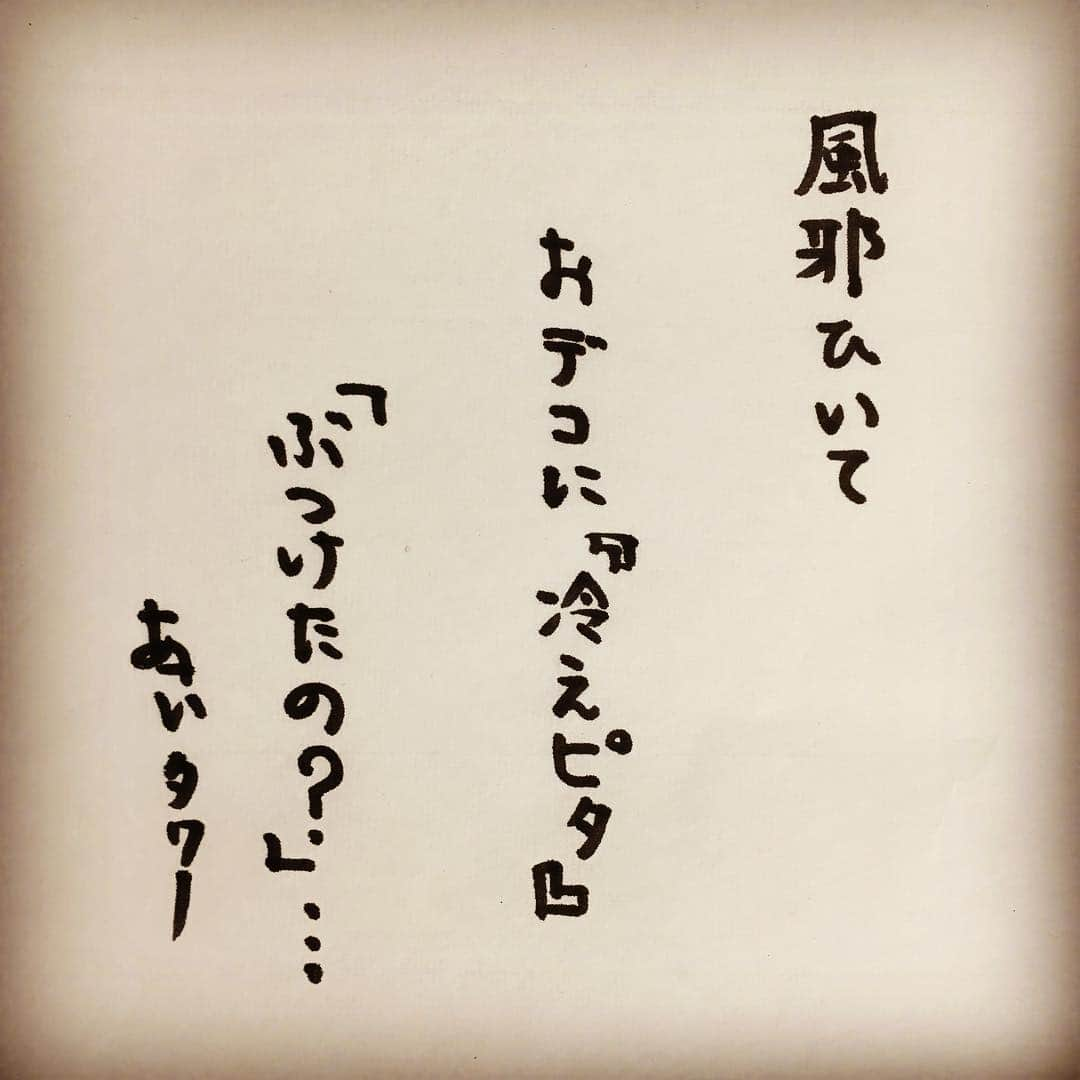 風邪ひいて
おデコに『冷えピタ』
「ぶつけたの？」…
あいタワー